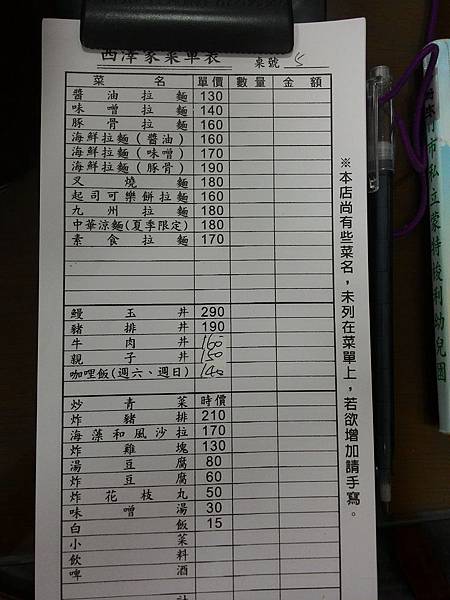 西澤家菜單表 桌號 5
菜名 單價 數量 金額
醬油拉麵 130
味噌拉麵 140
豚骨拉麵 160
海鮮拉麵(醬油) 160
海鮮拉麵(味噌) 170
海鮮拉麵(豚骨) 190
叉燒麵 180
起司可樂餅拉麵 160
九州拉麵 180
中華涼麵(夏季限定) 180
素食拉麵 170
鰻玉丼 290
豬排丼 190
牛肉丼 160
親子丼 150
咖哩飯(週六、週日) 140
炒青菜 時價
炸豬排 210
海藻和風沙拉 170
炸雞塊 130
湯豆腐 80
炸豆腐 60
炸花枝丸 50
味噌湯 30
白飯 15
小菜
飲料
啤酒
※本店尚有些菜名，未列在菜單上，若欲增加請手寫。
市私立蒙特梭利幼兒園